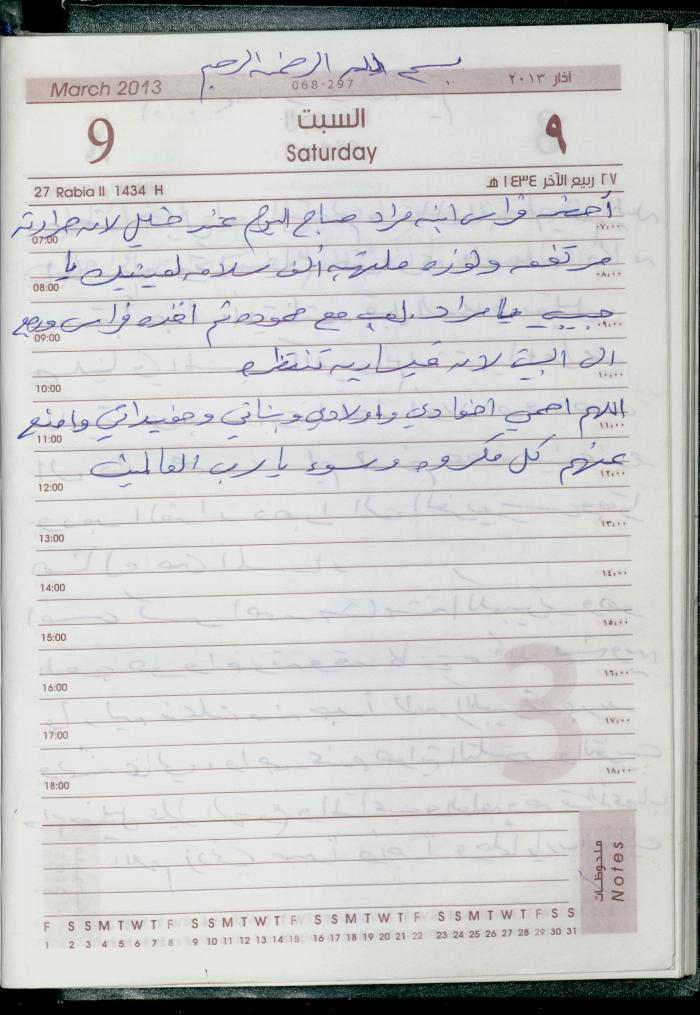 بسم الله الرحمن الرحيم
March 2013
068-297
آذار ٢٠١٣
9
السبت
Saturday
٩
27 Rabia II 1434 H
٢٧ ربيع الآخر ١٤٣٤ هـ
أحضر فراس ابنه مراد صباح اليوم عند خليل لانه حرارته
07:00 ٠٧،٠٠
مرتفعه ولوزه ملتهبه ألف سلامه لعينيك يا
08:00 ٠٨،٠٠
حبيبي يا مراد لعب مع حموده ثم اخذه فراس ورجع
09:00 ٠٩،٠٠
الى البيت لانه تنتظره
10:00 ١٠،٠٠
اللهم احمي احفادي واولادي وبناتي وحفيداتي وامنع
11:00 ١١،٠٠
عنهم كل مكروه وسوء يا رب العالمين
12:00 ١٢،٠٠
13:00 ١٣،٠٠
14:00 ١٤،٠٠
15:00 ١٥،٠٠
16:00 ١٦،٠٠
3
17:00 ١٧،٠٠
18:00 ١٨،٠٠
ملحوظات
Notes
F S S M T W T F S S M T W T F S S M T W T F S S M T W T F S S
1 2 3 4 5 6 7 8 9 10 11 12 13 14 15 16 17 18 19 20 21 22 23 24 25 26 27 28 29 30 31